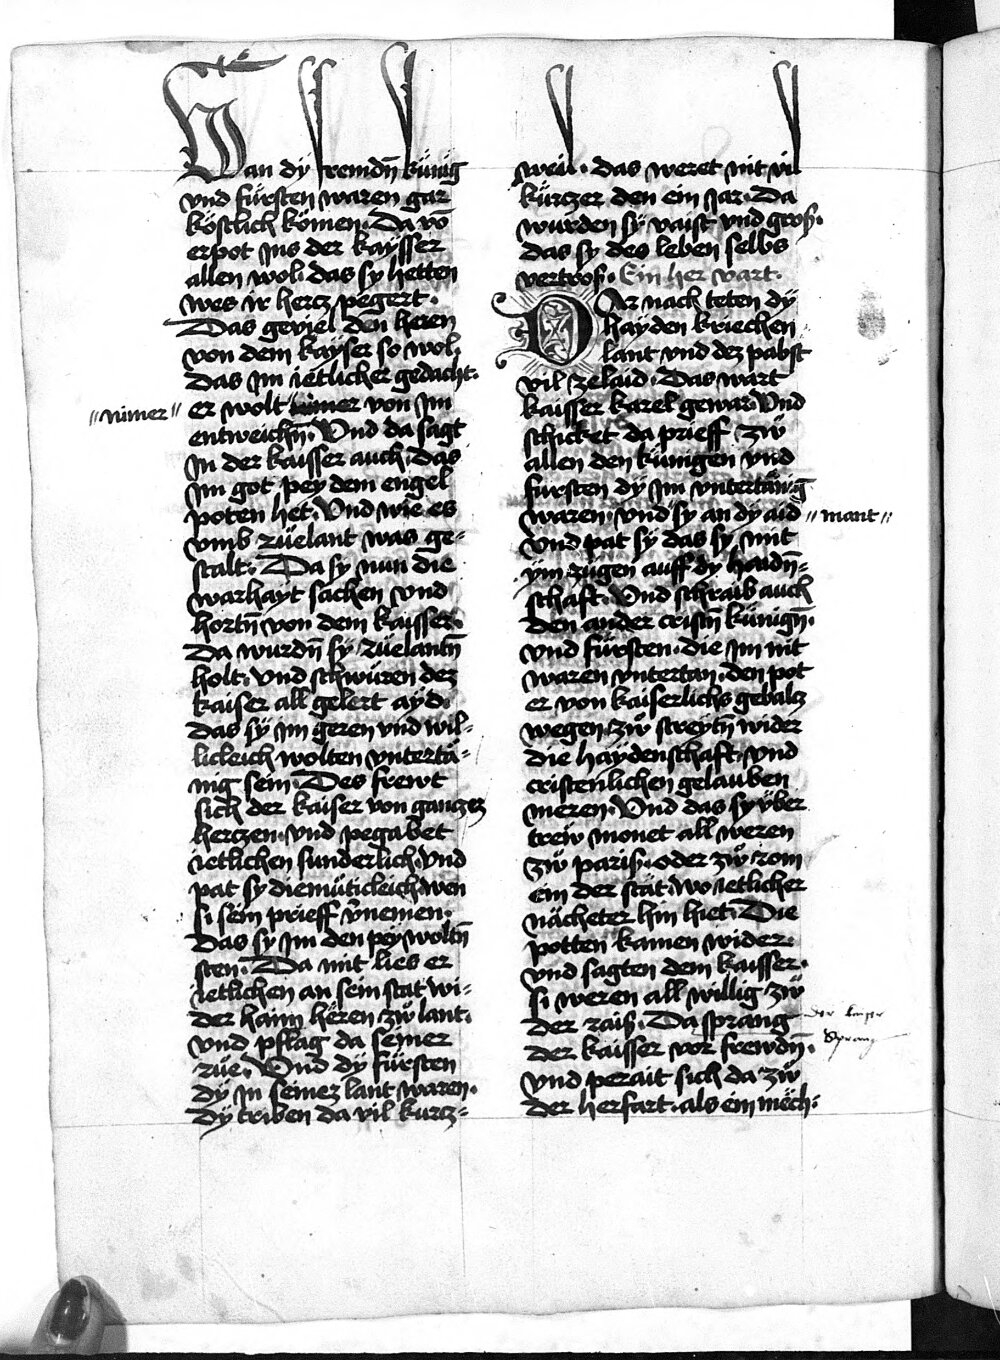 Wan dÿ fremdn̄ künig
vnd fürsten waren gar
köstlich kömen. Da vō
erpot Jns der kaÿsser
allen wol. das sy hetten
wes ir hercz pegert.
Das geviel den heren
von dem kaÿser so wol.
Das Jm ietlicher gedacht.
er wolt nimer von Jm
"nimer"
entweichn̄. Vnd da sagt
Jn der kaisser auch. das
Jm got pey dem engel
poten het. Vnd wie es
vmb züelant was ge-
stalt. Da sy nun die
warhayt sachen vnd
hortn̄ von dem kaisser.
Da wurdn̄ sy züelantn̄
holt. vnd schwüren dez
kaiser all gelert aÿd.
das sÿ im geren vnd wil-
licleich wolten vntertä-
nig sein. Des frewt
sich der kaiser von ganczez
herczen. vnd pegabet
ietlichen sunderlich. Vnd
pat sy diemüticleich wen
si sein prieff v̄nemen.
Das sy im den pey woltn̄
sten. Da mit lies er
ietlichen an sein stat wi-
der haim heren zů lant.
vnd pflag da seiner
rüe. Vnd dÿ fürsten
dÿ in seinez lant waren.
Dÿ triben da vil kurcz-
weil. das weret nit vil
kürczer den ein Jar. Da
wurden sÿ vaist vnd gros.
das sy des leben selbs
vertros. Ein her vart.
DAr nach teten dÿ
hayden kriechen
lant vnd dez pabst
vil ze laid. Das wart
kaisser karel gewar. Vnd
schicket da prieff zů
allen den künigen vnd
fursten dÿ Jm vntertänig
waren. vnd sy an dÿ aid
"mant"
vnd pat sÿ das sy mit
ÿm zugen auff dy haidn̄-
schaft. Vnd schraib auch
den ander cristn̄ künign̄.
vnd fürsten. die im nit
waren vntertan. den pot
er von kaiserlichs gebalcz
wegen. zů streytn̄ wider
die haÿdenschaft. vnd
cristenlichen gelauben
meren. Vnd das sy über
treiv monet all weren
zů paris. oder zů rom
ein der stät wo ietlicher
nächeter hin hiet. Die
potten kamen wider.
vnd sagten dem kaisser.
si weren all willig zů
der rais. Da sprang
der keiser
sprang
der kaisser vor frewdn̄.
vnd perait sich da zů
der herfart. als ein mëch-